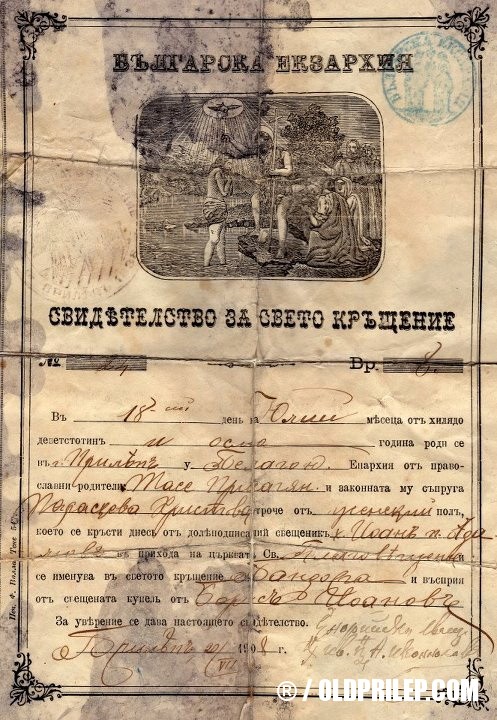 БЪЛГАРСКА ЕКЗАРХИЯ
СВИДѢТЕЛСТВО ЗА СВЕТО КРЪЩЕНИЕ
№ 24 Бр. 8.
Въ 18-ий день на Юлий мѣсеца отъ хилядо
деветстотин и осма година роди се
въ г. Прилѣпъ у Пелагон. Епархия отъ право-
славни родители Тасе и законната му съпруга
Параскева Христова отроче отъ женский полъ,
което се кръсти днесь отъ долѣподписаний свещеникъ Иоанъ п.
въ прихода на църквата Св. Благовѣщение и
се именува въ светото кръщение и въсприе
отъ священата купель отъ Борисъ Иоановъ
За увѣрение се дава настоящето свидѣтелство.
Прилѣпъ 20/VII 1908
® / OLDPRILEP.COM